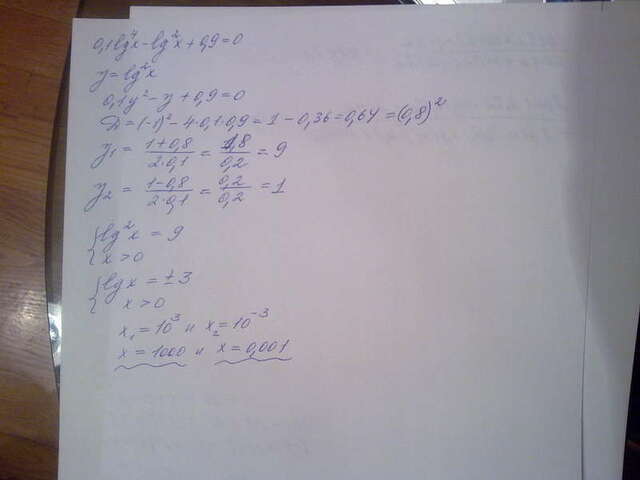 0,1lg⁴x - lg²x + 0,9 = 0
y = lg²x
0,1y² - y + 0,9 = 0
D = (-1)² - 4·0,1·0,9 = 1 - 0,36 = 0,64 = (0,8)²
y₁ = (1+0,8)/(2·0,1) = 1,8/0,2 = 9
y₂ = (1-0,8)/(2·0,1) = 0,2/0,2 = 1
{ lg²x = 9
x > 0
{ lgx = ± 3
x > 0
x₁ = 10³ и x₂ = 10⁻³
x = 1000 и x = 0,001